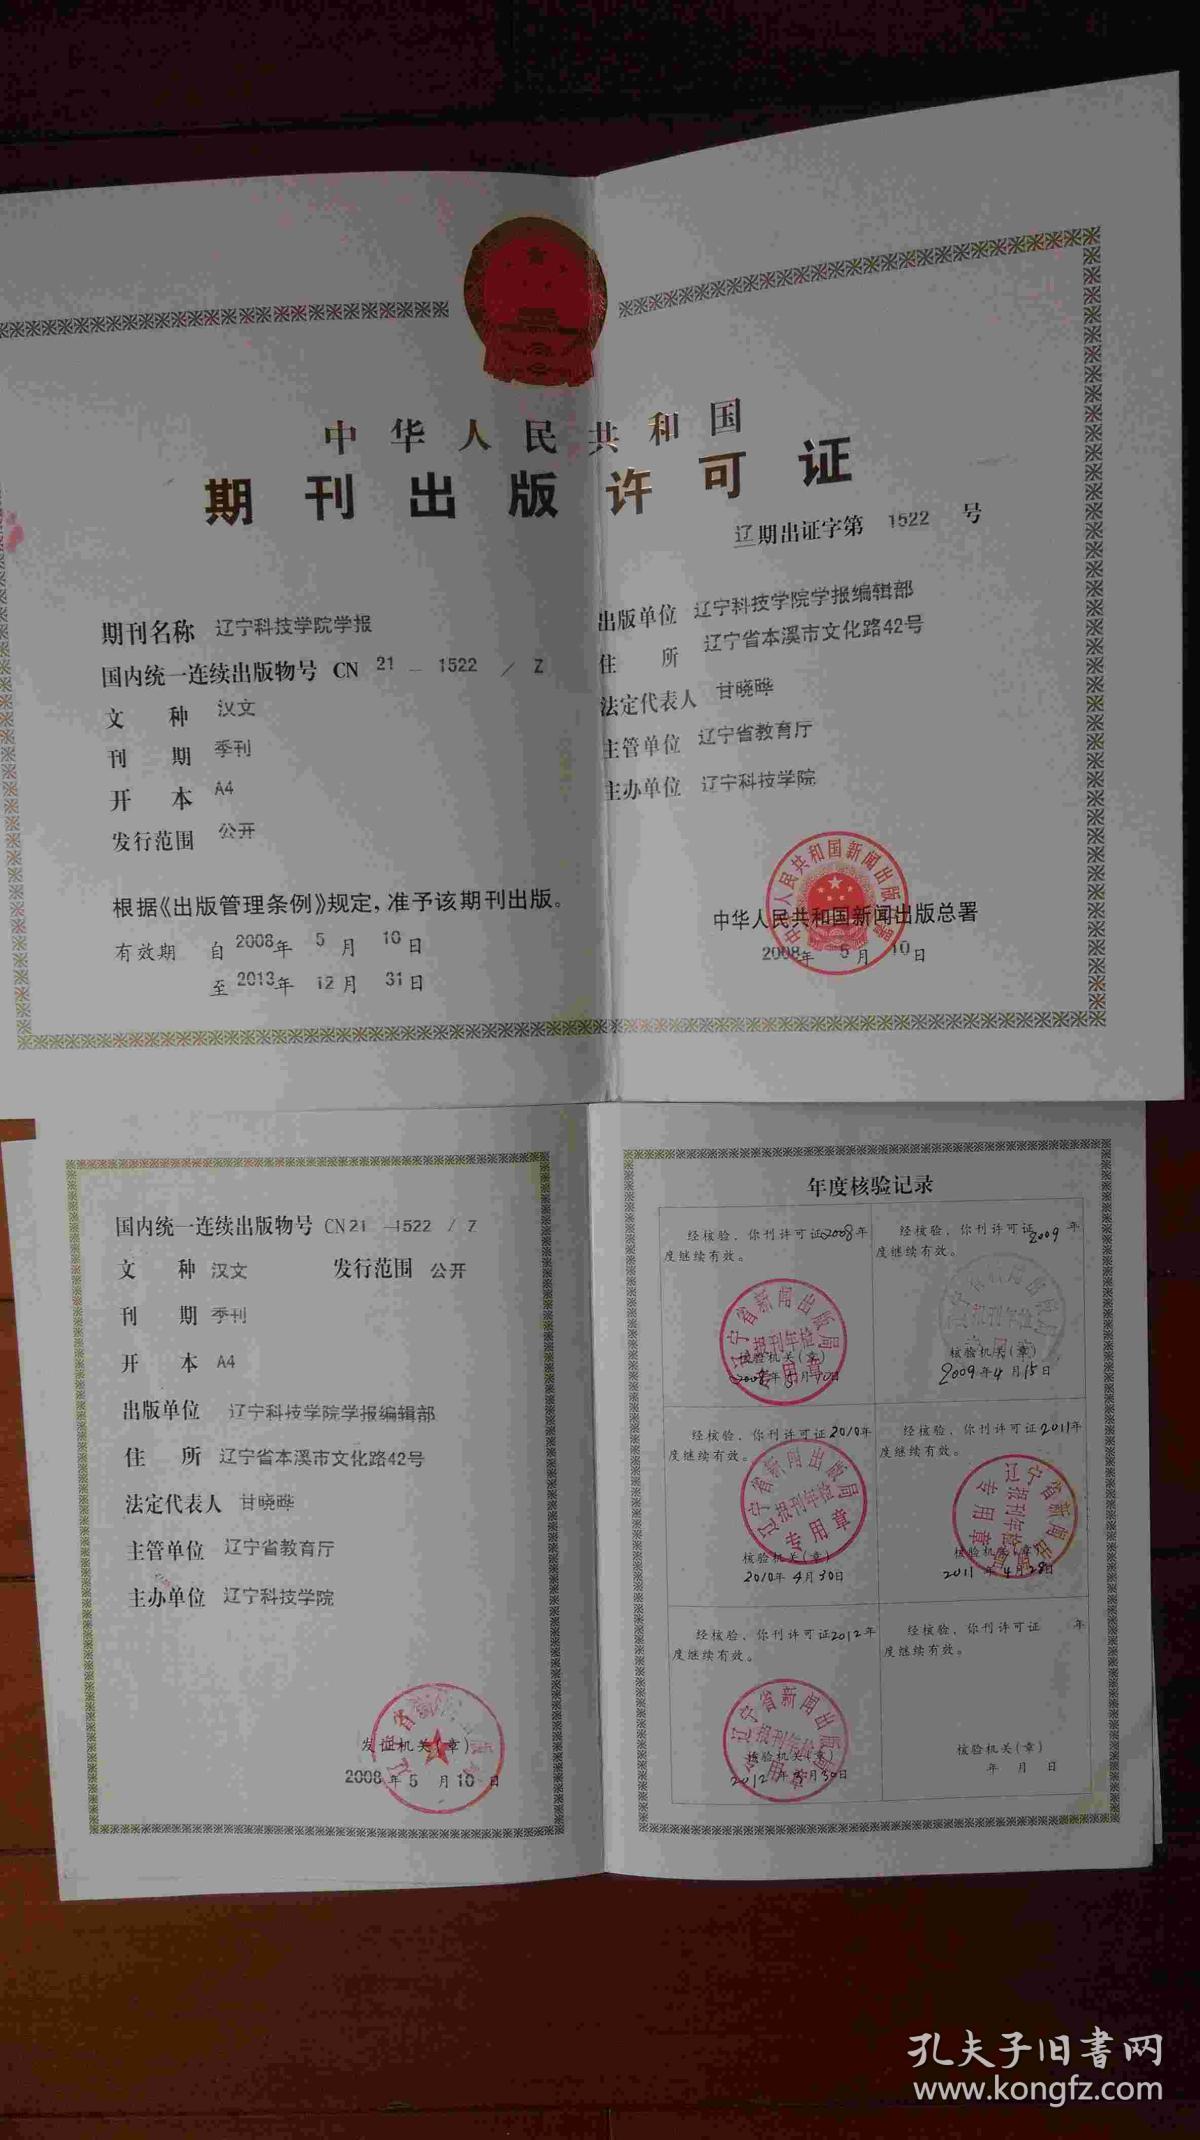 中华人民共和国
期刊出版许可证
辽期出证字第 1522 号
期刊名称 辽宁科技学院学报
国内统一连续出版物号 CN 21 — 1522 / Z
文 种 汉文
刊 期 季刊
开 本 A4
发行范围 公开
出版单位 辽宁科技学院学报编辑部
住 所 辽宁省本溪市文化路42号
法定代表人 甘晓晔
主管单位 辽宁省教育厅
主办单位 辽宁科技学院
根据《出版管理条例》规定,准予该期刊出版。
有效期 自 2008年 5 月 10 日
至 2013年 12 月 31 日
中华人民共和国新闻出版总署
2008年 5 月 10 日
国内统一连续出版物号 CN 21 —1522 / Z
文 种 汉文 发行范围 公开
刊 期 季刊
开 本 A4
出版单位 辽宁科技学院学报编辑部
住 所 辽宁省本溪市文化路42号
法定代表人 甘晓晔
主管单位 辽宁省教育厅
主办单位 辽宁科技学院
发证机关(章)
2008 年 5 月 10 日
年度核验记录
经核验,你刊许可证2008年
度继续有效。
辽宁省新闻出版局
报刊年检
专用章
核验机关(章)
经核验,你刊许可证2009年
度继续有效。
核验机关(章)
2009年4月15日
经核验,你刊许可证2010年
度继续有效。
辽宁省新闻出版局
报刊年检
专用章
核验机关(章)
2010年4月30日
经核验,你刊许可证2011年
度继续有效。
辽宁省新闻出版局
报刊年检
专用章
核验机关(章)
2011年4月28日
经核验,你刊许可证2012年
度继续有效。
辽宁省新闻出版局
报刊年检
专用章
核验机关(章)
经核验,你刊许可证 年
度继续有效。
核验机关(章)
年 月 日
孔夫子旧书网
www.kongfz.com